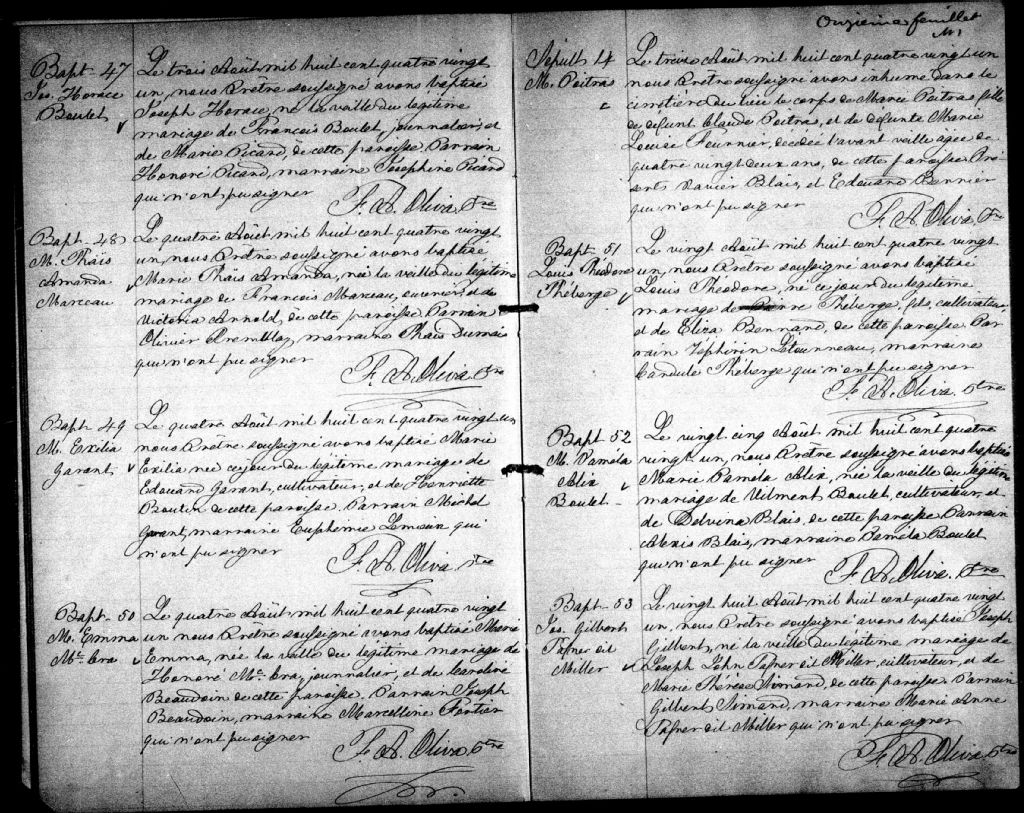 Bapt. 47
Jos. Horace
Boulet
Le trois Août mil huit cent quatre vingt
un, nous Prêtre soussigné avons baptisé
Joseph Horace, né la veille du légitime
mariage de François Boulet, journalier, et
de Marie Picard, de cette paroisse. Parrain
Honoré Picard, marraine Joséphine Picard
qui n'ont pu signer
F. A. Oliva Ptre
Bapt. 48
M. Thaïs
Amanda
Marceau
Le quatre Août mil huit cent quatre vingt
un, nous Prêtre soussigné avons baptisé
Marie Thaïs Amanda, née la veille du légitime
mariage de François Marceau, ouvrier, et de
Victoria Arnold, de cette paroisse. Parrain
Olivier Tremblay, marraine Thaïs Dumais
qui n'ont pu signer
F. A. Oliva Ptre
Bapt. 49
M. Exilia
Garant
Le quatre Août mil huit cent quatre vingt un
nous Prêtre soussigné avons baptisé Marie
Exilia née ce jour du légitime mariage de
Edouard Garant, cultivateur, et de Henriette
Boutin de cette paroisse. Parrain Michel
Garant, marraine Euphémie Lemieux qui
n'ont pu signer
F. A. Oliva Ptre
Bapt. 50
M. Emma
Mc. Cra
Le quatre Août mil huit cent quatre vingt
un nous Prêtre soussigné avons baptisé Marie
Emma, née la veille du légitime mariage de
Honoré Mc. Cra, journalier, et de Caroline
Beaudoin de cette paroisse. Parrain Joseph
Beaudoin, marraine Marcelline Fortier
qui n'ont pu signer
F. A. Oliva Ptre
Onzième feuillet
Sépult. 14
M. Poitras
Le treize Août mil huit cent quatre vingt un
nous Prêtre soussigné avons inhumé dans le
cimetière du lieu le corps de Marie Poitras fille
de défunt Claude Poitras, et de défunte Marie
Louise Fournier, décédée l'avant veille agée de
quatre vingt deux ans, de cette paroisse. Pré
sents Xavier Blais, et Edouard Bernier
qui n'ont pu signer
F. A. Oliva Ptre
Bapt. 51
Louis Théodore
Théberge
Le vingt Août mil huit cent quatre vingt
un, nous Prêtre soussigné avons baptisé
Louis Théodore, né ce jour du légitime
mariage de Pierre Théberge fils, cultivateur
et de Eliza Bernard, de cette paroisse. Par
rain Zéphirin Létourneau, marraine
Candule Théberge qui n'ont pu signer
F. A. Oliva Ptre
Bapt. 52
M. Paméla
Alix
Boulet
Le vingt cinq Août mil huit cent quatre
vingt un, nous Prêtre soussigné avons baptisé
Marie Paméla Alix, née la veille du légitime
mariage de Vilment Boulet, cultivateur, et
de Delvina Blais, de cette paroisse Parrain
Alexis Blais, marraine Paméla Boulet
qui n'ont pu signer
F. A. Oliva. Ptre
Bapt. 53
Jos. Gilbert
Tafner dit
Miller
Le vingt huit Août mil huit cent quatre vingt
un, nous Prêtre soussigné avons baptisé Joseph
Gilbert, né la veille du légitime mariage de
Joseph John Tafner dit Miller, cultivateur, et de
Marie Thérèse Simard, de cette paroisse. Parrain
Gilbert Simard, marraine Marie Anne
Tafner dit Miller qui n'ont pu signer
F. A. Oliva Ptre